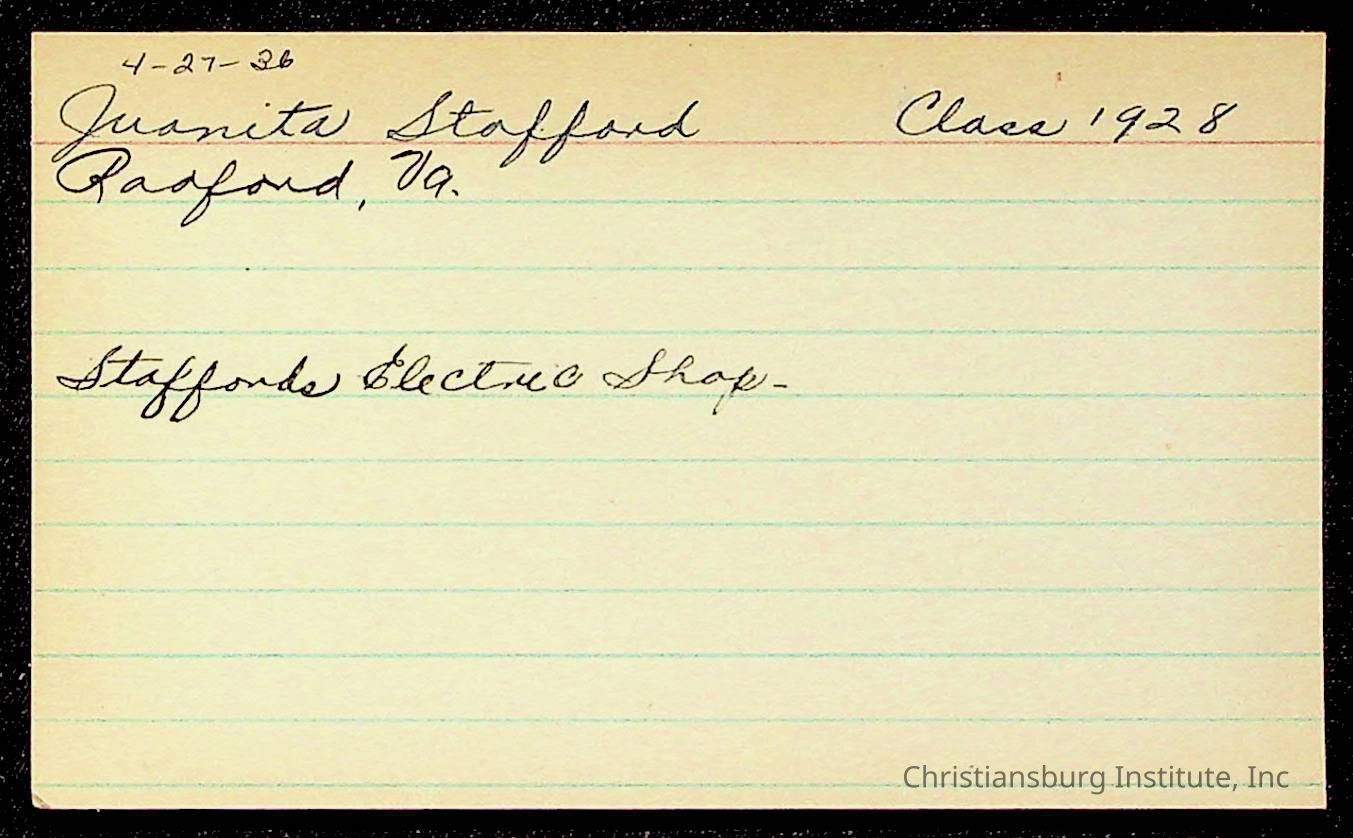 4-27-36
Juanita Stafford Class 1928
Radford, Va.
Staffords Electric Shop-
Christiansburg Institute, Inc